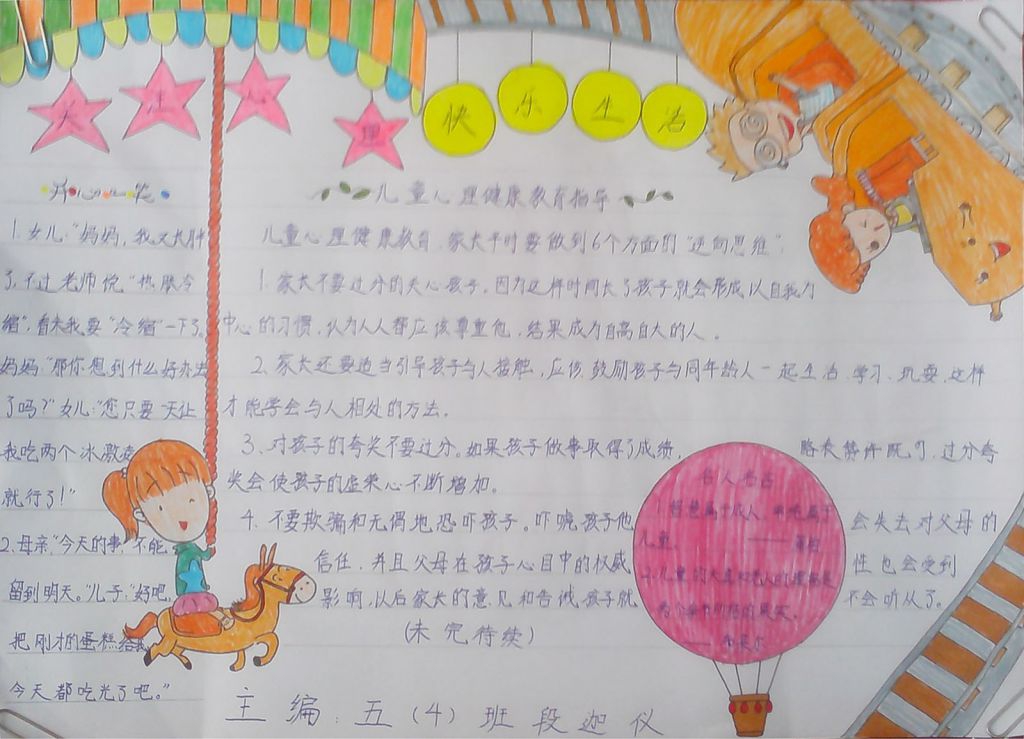 关注心理
快乐生活
开心一笑
1.女儿:"妈妈,我又长胖
了,不过老师说"热胀冷
缩",看来我要"冷缩"一下了。
妈妈:"那你想到什么好办法
了吗?"女儿:"您只要一天让
我吃两个冰激凌
就行了!"
2.母亲:"今天的事,不能
留到明天。"儿子:"好吧,
把刚才的蛋糕给我
今天都吃光了吧。"
儿童心理健康教育指导
儿童心理健康教育,家长平时要做到6个方面的"逆向思维":
1.家长不要过分的关心孩子,因为这样时间长了孩子就会形成以自我为
中心的习惯,认为人人都应该尊重他,结果成为自高自大的人。
2.家长还要适当引导孩子与人接触,应该鼓励孩子与同年龄人一起生活、学习、玩耍,这样
才能学会与人相处的方法。
3.对孩子的夸奖不要过分。如果孩子做事取得了成绩,略表赞许既可,过分夸
奖会使孩子的虚荣心不断增加。
4.不要欺骗和无谓地恐吓孩子。吓唬孩子他会失去对父母的
信任,并且父母在孩子心目中的权威性也会受到
影响,以后家长的意见和告诫,孩子就不会听从了。
(未完待续)
名人名言
属于成人,
属于
儿童。
2.儿童的天真和老人的理智是
两个季节所结的果实。
——布莱尔
主编:五(4)班段迦仪